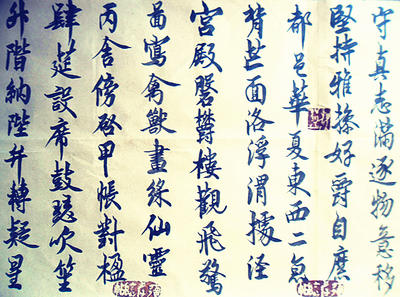 守真志滿逐物意移
堅持雅操好爵自縻
都邑華夏東西二京
背芒面洛浮渭據涇
宮殿磐欝樓觀飛驚
啚寫禽獸畫綵仙靈
丙舍傍啓甲帳對楹
肆莚設席鼓瑟吹笙
升階納陛弁轉疑星